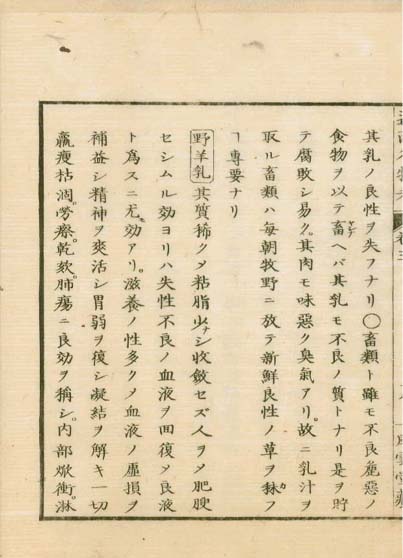 其乳ノ良性ヲ失フナリ〇畜類ト雖モ不良麁惡ノ
食物ヲ以テ畜ヤシナヘバ其乳モ不良ノ質トナリ是ヲ貯
テ腐敗シ易ク。其肉モ味惡ク臭氣アリ。故ニ乳汁ヲ
取ル畜類ハ每朝牧野ニ放テ新鮮良性ノ草ヲ秣カフ
ヿ專要ナリ
野羊乳 其質稀クメ粘脂少ナシ收斂セズ人ヲメ肥腴
セシムル効ヨリハ失性不良ノ血液ヲ回復メ良液
ト爲スニ尤効アリ。滋養ノ性多クメ血液ノ虛損ヲ
補益シ精神ヲ爽活シ胃弱ヲ復シ凝結ヲ解キ一切
羸瘦枯凋。勞瘵。乾欬。肺瘍ニ良効ヲ稱シ。内部焮衝。淋